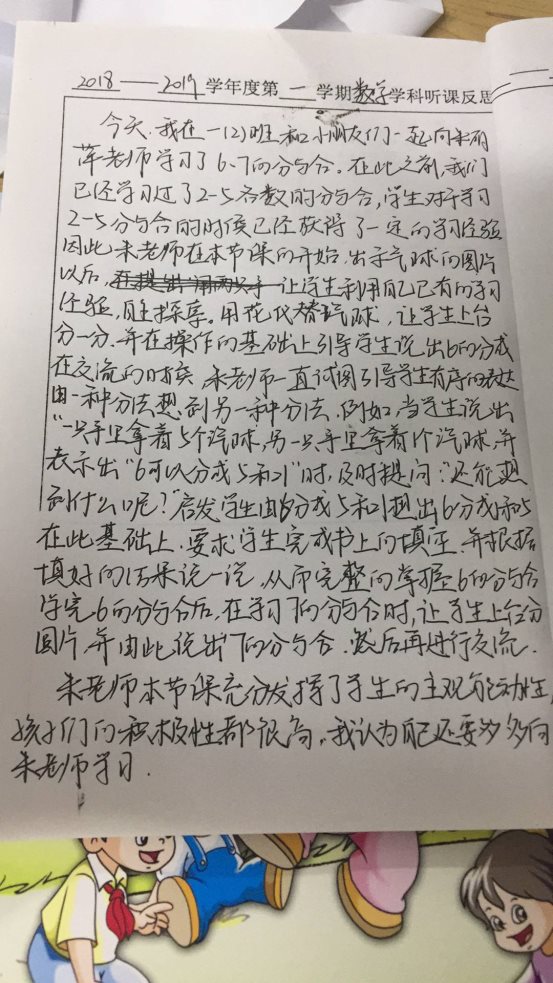 2018——2019学年度第一学期数学学科听课反思
今天,我在一(2)班和小朋友们一起向朱丽
萍老师学习了6、7的分与合。在此之前,我们
已经学习过了2-5各数的分与合,学生对于学习
2-5分与合的时候已经获得了一定的学习经验
因此朱老师在本节课的开始,出示气球的图片
以后,让学生利用自己已有的学习
经验,自主探索。用花代替汽球,让学生上台
分一分,并在操作的基础上引导学生说出6的分成
在交流的时候,朱老师一直试图引导学生有序的表达
由一种分法想到另一种分法,例如,当学生说出
“一只手里拿着5个汽球,另一只手里拿着1个汽球,并
表示出“6可以分成5和1”时,及时提问:“还能想
到什么呢?”启发学生由6分成5和1想出6分成1和5
在此基础上,要求学生完成书上的填空,并根据
填好的结果说一说,从而完整的掌握6的分与合
学完6的分与合后,在学习7的分与合时,让学生上台分
图片,并由此说出7的分与合,然后再进行交流.
朱老师本节课充分发挥了学生的主观能动性,
孩子们的积极性都很高,我认为自己还要多多向
朱老师学习.